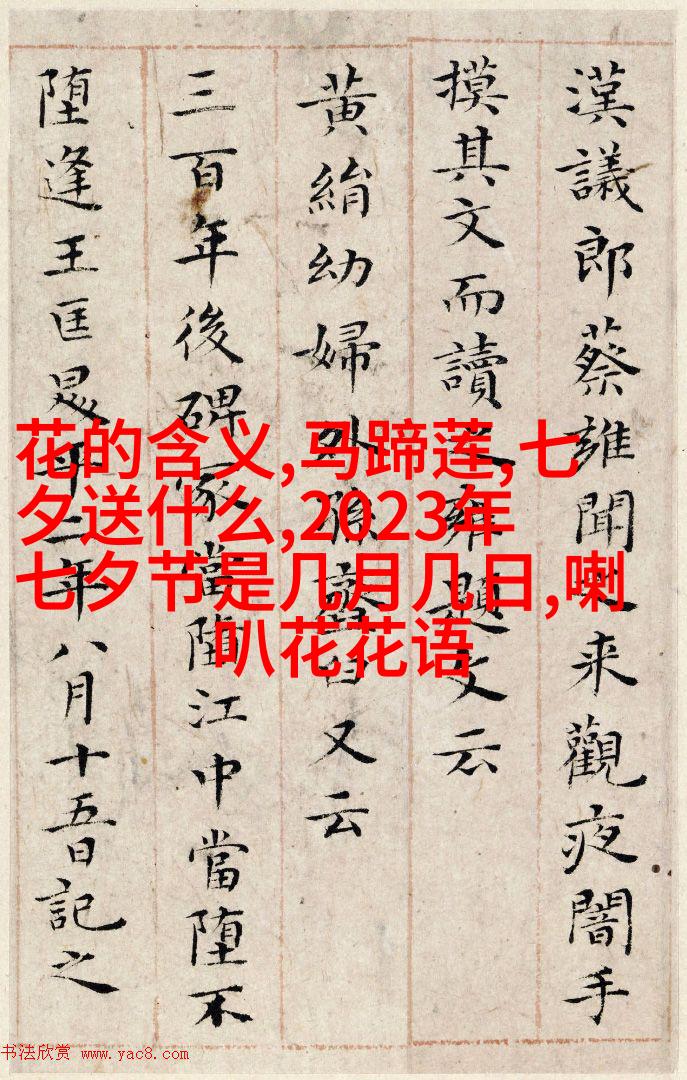 漢議郎蔡雍聞之来觀夜闇手
摸其文而讀之雍題文云
黄絹幼婦外孫韲臼又云
三百年後碑冢當堕江中當堕不
堕逢王匡昇平二年八月十五日記之
花的含义,马蹄莲,七
夕送什么,2023年
七夕节是几月几日,喇
叭花花语
书法欣赏 www.yac8.com